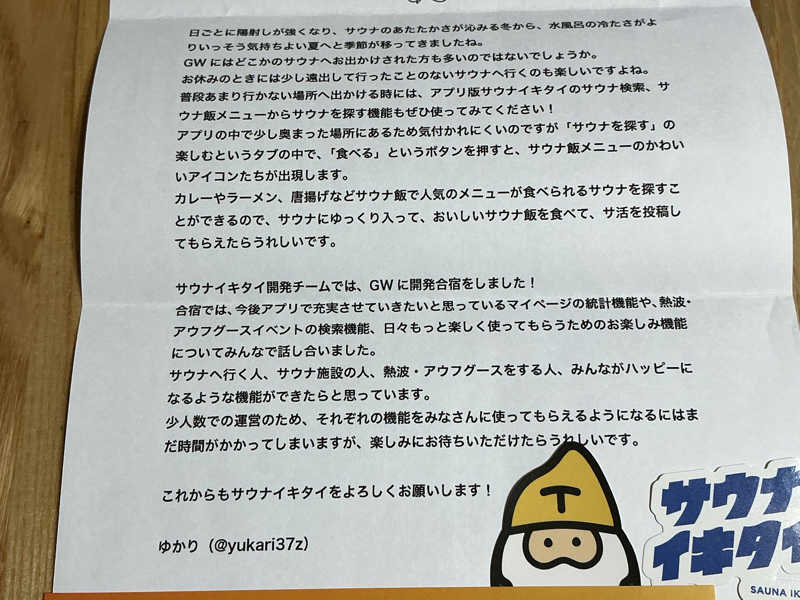 日ごとに陽射しが強くなり、サウナのあたたかさが沁みる冬から、水風呂の冷たさがよ
りいっそう気持ちよい夏へと季節が移ってきましたね。
GWにはどこかのサウナへお出かけされた方も多いのではないでしょうか。
お休みのときには少し遠出して行ったことのないサウナへ行くのも楽しいですよね。
普段あまり行かない場所へ出かける時には、アプリ版サウナイキタイのサウナ検索、サ
ウナ飯メニューからサウナを探す機能もぜひ使ってみてください！
アプリの中で少し奥まった場所にあるため気付かれにくいのですが「サウナを探す」の
楽しむというタブの中で、「食べる」というボタンを押すと、サウナ飯メニューのかわい
いアイコンたちが出現します。
カレーやラーメン、唐揚げなどサウナ飯で人気のメニューが食べられるサウナを探すこ
とができるので、サウナにゆっくり入って、おいしいサウナ飯を食べて、サ活を投稿し
てもらえたらうれしいです。
サウナイキタイ開発チームでは、GWに開発合宿をしました！
合宿では、今後アプリで充実させていきたいと思っているマイページの統計機能や、熱波・
アウフグースイベントの検索機能、日々もっと楽しく使ってもらうためのお楽しみ機能
についてみんなで話し合いました。
サウナへ行く人、サウナ施設の人、熱波・アウフグースをする人、みんながハッピーに
なるような機能ができたらと思っています。
少人数での運営のため、それぞれの機能をみなさんに使ってもらえるようになるにはま
だ時間がかかってしまいますが、楽しみにお待ちいただけたらうれしいです。
これからもサウナイキタイをよろしくお願いします！
ゆかり（@yukari37z）
T
サウナ
イキタイ
SAUNA IK